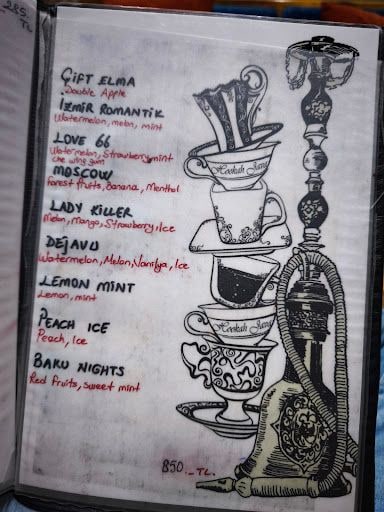 285.
TL
ÇİFT ELMA
Double Apple
İZMİR ROMANTİK
Watermelon, melon, mint
LOVE 66
Watermelon, Strawberry, mint
che wing gum
MOSCOW
Forest fruits, Banana, Menthol
LADY KILLER
Melon, Mango, Strawberry, Ice
DEJAVU
Watermelon, Melon, Vanilya, Ice
LEMON MINT
Lemon, mint
PEACH ICE
Peach, Ice
BAKU NIGHTS
Red fruits, sweet mint
Hookah
Hookah
850.-TL.